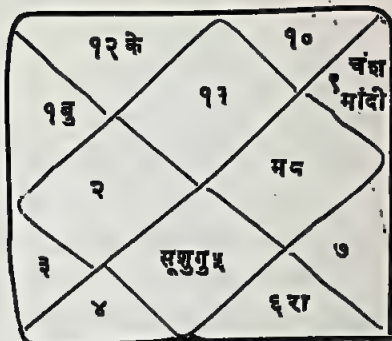 १२ के
१०
९ चंश
मांदी
१ बु
११
२
म८
३
सूशुगु५
७
४
६ रा